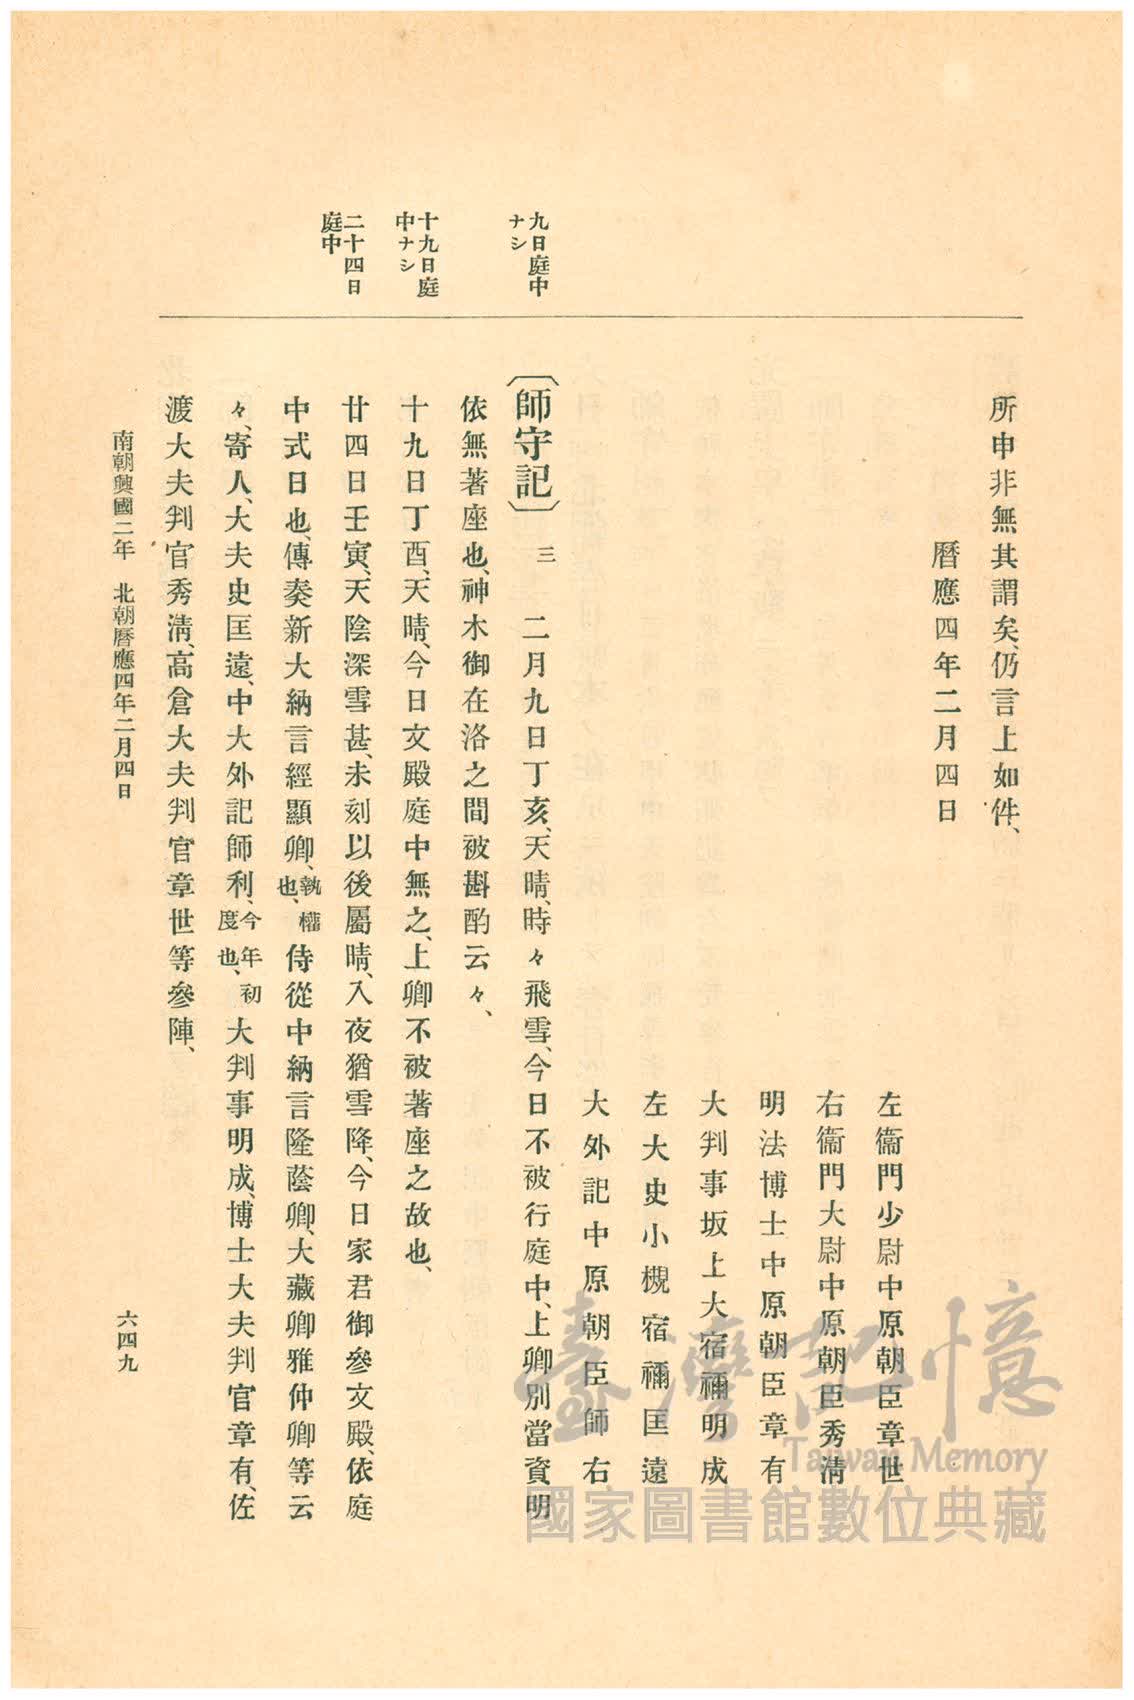 所申非無其謂矣、仍言上如件、
曆應四年二月四日
左衞門少尉中原朝臣章世
右衞門大尉中原朝臣秀淸
明法博士中原朝臣章有
大判事坂上大宿禰明成
左大史小槻宿禰匡遠
大外記中原朝臣師右
九日庭中
ナシ
〔師守記〕 三 二月九日丁亥、天晴、時々飛雪、今日不被行庭中、上卿別當資明
依無著座也、神木御在洛之間被斟酌云々、
十九日庭
中ナシ
十九日丁酉、天晴、今日文殿庭中無之、上卿不被著座之故也、
二十四日
庭中
廿四日壬寅、天陰深雪甚、未刻以後屬晴、入夜猶雪降、今日家君御參文殿、依庭
中式日也、傳奏新大納言經顯卿、執權也、侍從中納言隆蔭卿、大藏卿雅仲卿等云
々、寄人、大夫史匡遠、中大外記師利、今年初度也、大判事明成、博士大夫判官章有、佐
渡大夫判官秀淸、高倉大夫判官章世等參陣、
南朝興國二年 北朝曆應四年二月四日
六四九
臺灣記憶
Taiwan Memory
國家圖書館數位典藏